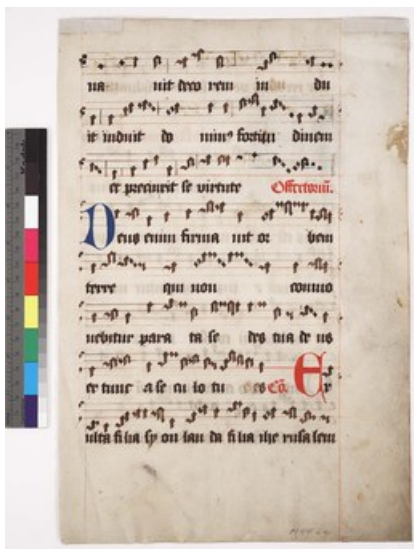 na uit deco rem in du
it induit do min⁹ fortitu dinem
et precinxit se virtute Offertoriū.
Deus enim firma uit or bem
terre qui non commo
uebitur para ta se des tua de us
ex tunc a se cu lo tu es Cō. Ex
ulta fi lia sy on lau da fi lia ihe rusa lem